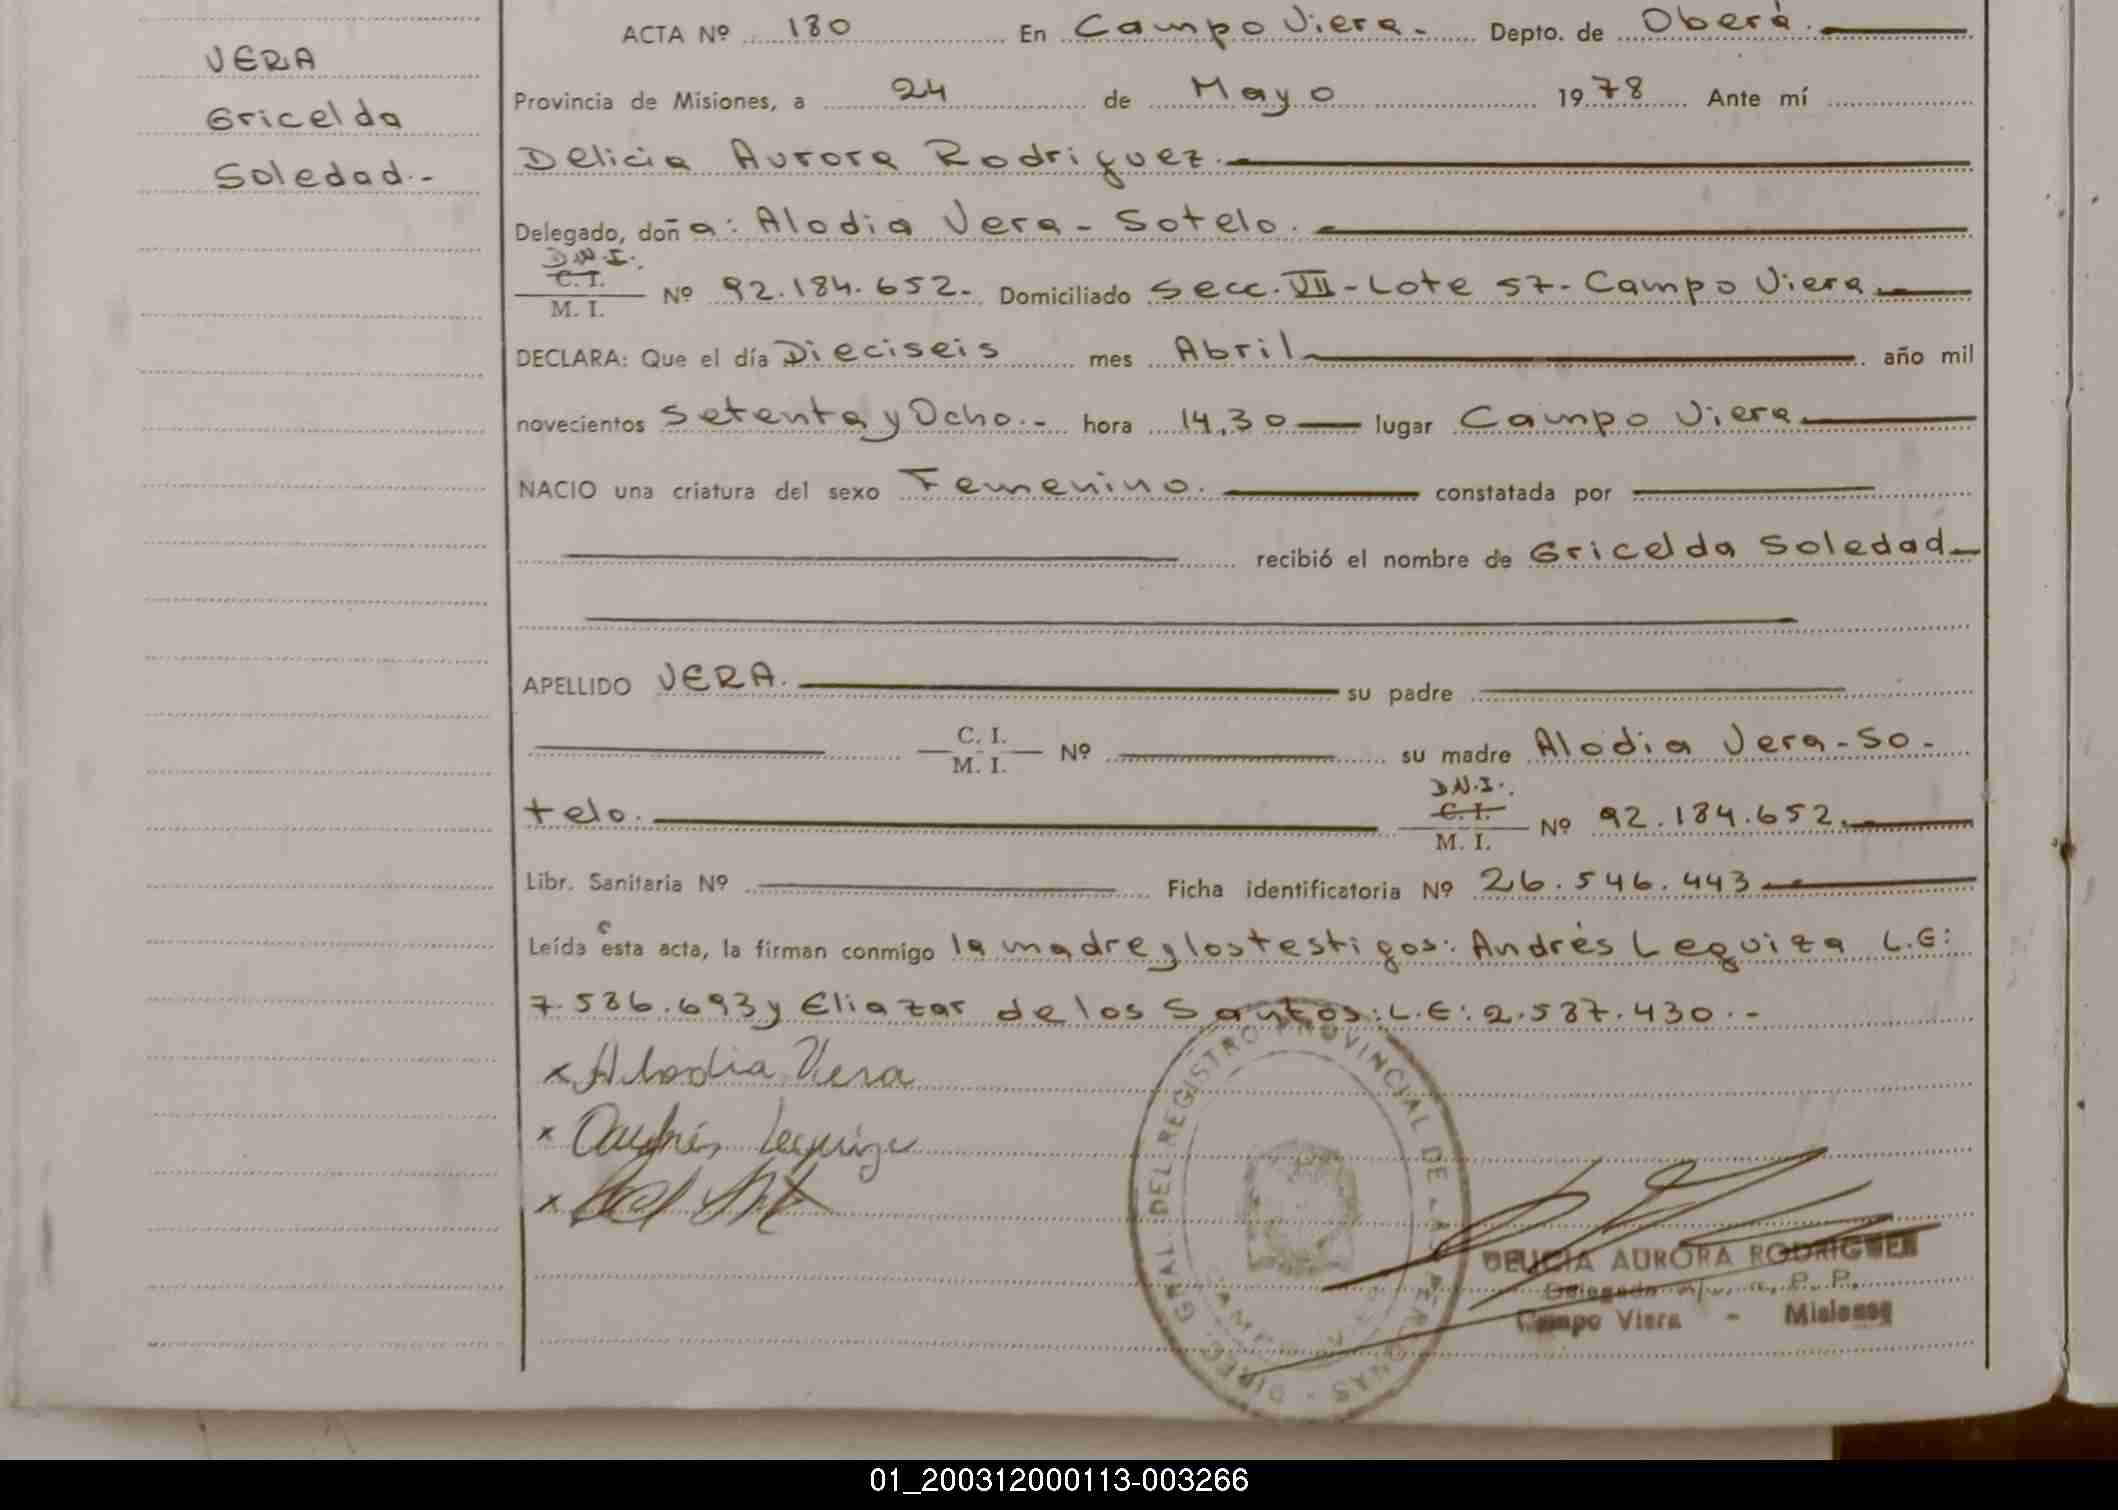 VERA
Gricelda
Soledad.-
ACTA Nº 180 En Campo Viera.- Depto. de Oberá.
Provincia de Misiones, a 24 de Mayo 1978 Ante mí
Delicia Aurora Rodriguez.-
Delegado, doña: Alodia Vera - Sotelo.
D.N.I.
C. I.
M. I. Nº 92.184.652.- Domiciliado Secc. VII - Lote 57 - Campo Viera
DECLARA: Que el día Dieciseis mes Abril año mil
novecientos Setenta y Ocho.- hora 14,30 lugar Campo Viera
NACIO una criatura del sexo Femenino. constatada por
recibió el nombre de Gricelda Soledad
APELLIDO VERA. su padre
C. I.
M. I. Nº su madre Alodia Vera - So-
telo. D.N.I. C. I. M. I. Nº 92.184.652.
Libr. Sanitaria Nº Ficha identificatoria Nº 26.546.443
Leída esta acta, la firman conmigo la madre y los testigos: Andrés Leguiza L.E:
7.586.693 y Eliazar de los Santos: L.E: 2.587.430.-
x Alodia Vera
x Andrés Leguiza
x
DIREC. GRAL. DEL REGISTRO PROVINCIAL DE LAS PERSONAS
CAMPO V
DELICIA AURORA RODRIGUEZ
Delegada
Campo Viera - Misiones
01_200312000113-003266